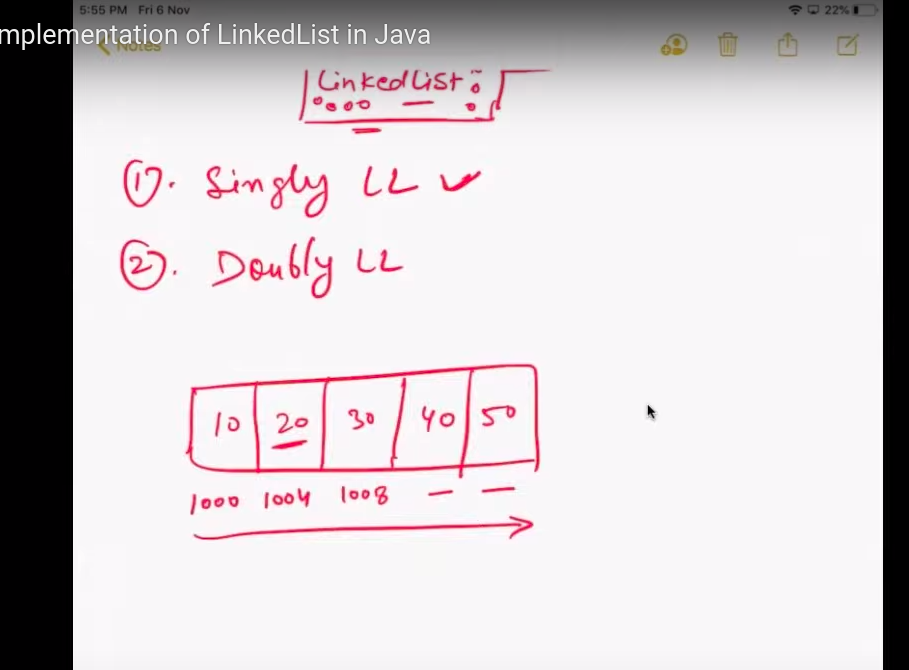 5:55 PM Fri 6 Nov
22%
mplementation of LinkedList in Java
Notes
LinkedList:
①. Singly LL ✓
②. Doubly LL
10 20 30 40 50
1000 1004 1008 — —